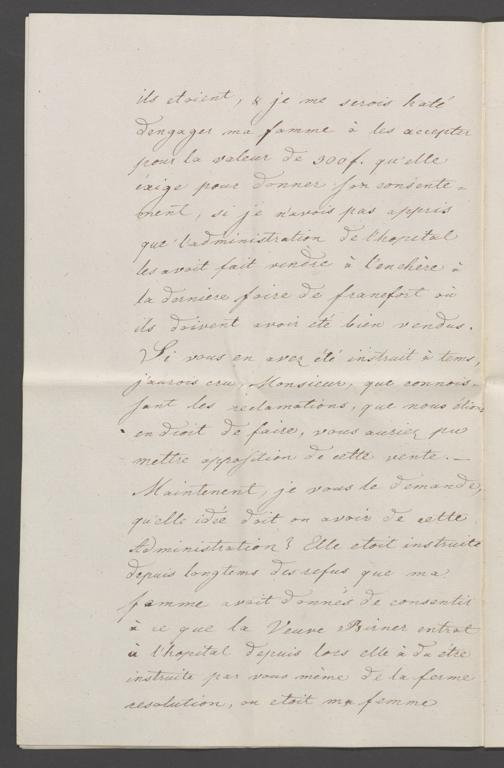 ils etoient, & je me serois haté
d'engager ma famme à les accepter
pour la valeur de 300f. qu'elle
éxige pour donner son consente-
ment, si je n'avois pas appris
que l'administration de l'hopital
les avoit fait vendre à l'enchère à
la derniere foire de francfort où
ils doivent avoir été bien vendus.
Si vous en avez été instruit à tems,
j'aurois cru, Monsieur, que connois-
sant les reclamations, que nous étions
en droit de faire, vous auriez pu
mettre opposition de cette vente. —
Maintenent, je vous le demande,
qu'elle idée doit on avoir de cette
Administration? Elle etoit instruite
depuis longtems des refus que ma
famme avoit donnés de consentir
à ce que la Veuve Birner entrat
à l'hopital depuis lors elle à du etre
instruite par vous même de la ferme
resolution, ou etoit ma famme